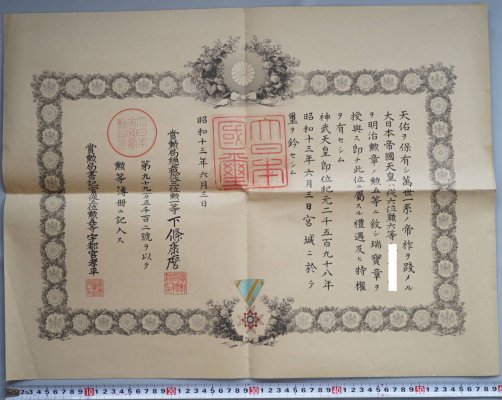 天佑ヲ保有シ萬世一系ノ帝祚ヲ踐メル
大日本帝國天皇ハ從六位勲六等
ヲ明治勲章ノ勲五等ニ敘シ瑞寶章ヲ
授與ス即チ此位ニ屬スル禮遇及ヒ特權
ヲ有セシム
神武天皇即位紀元二千五百九十八年
昭和十三年六月三日宮城ニ於テ
璽ヲ鈐セシム
大日本國璽
昭和十三年六月三日
賞勲局總裁從二位勲一等下條康麿
第九十九万五千百二號ヲ以テ
勲等簿冊ニ記入ス
賞勲局書記官從五位勲五等宇都宮孝平